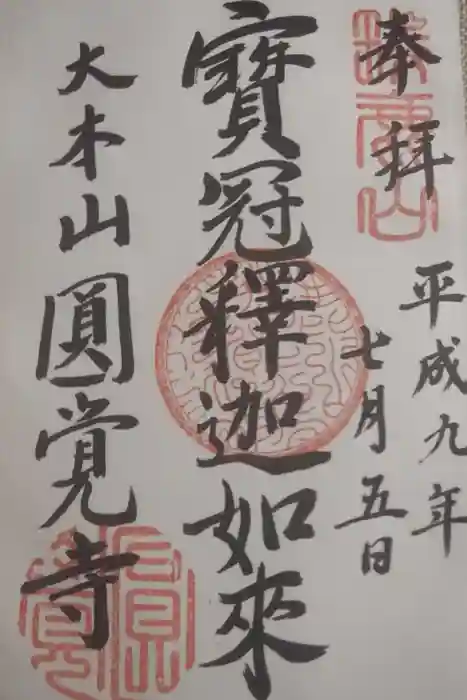 奉拜
平成九年
七月五日
寶冠釋迦如來
大本山圓覚寺